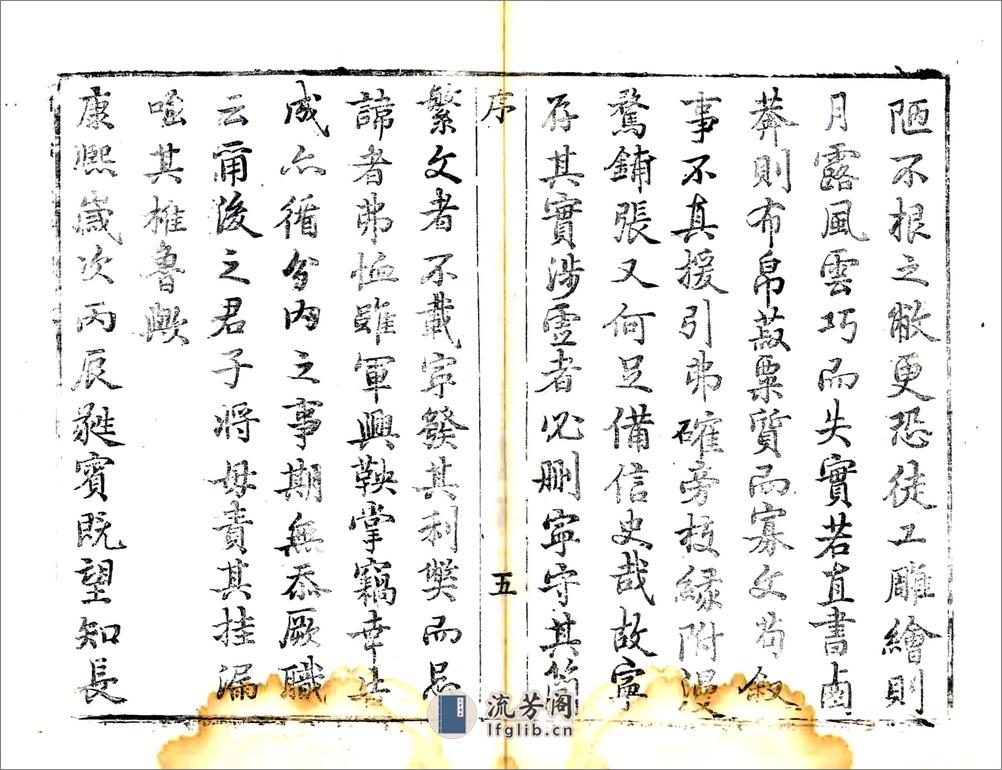 陋不根之敝更恐徒工雕繪則
月露風雲巧而失實若直書鹵
莽則布帛菽粟質而寡文苟叙
事不真援引弗確旁枝緣附漫
鶩鋪張又何足備信史哉故寧
存其實涉虛者必刪寧守其簡
序
五
繁文者不載寧發其利獘而忌
諱者弗恤雖軍興鞅掌竊幸其
成亦循分內之事期無忝厥職
云爾後之君子將毋責其挂漏
嗤其椎魯歟
康熙歲次丙辰蕤賓既望知長
流芳阁
lfglib.cn